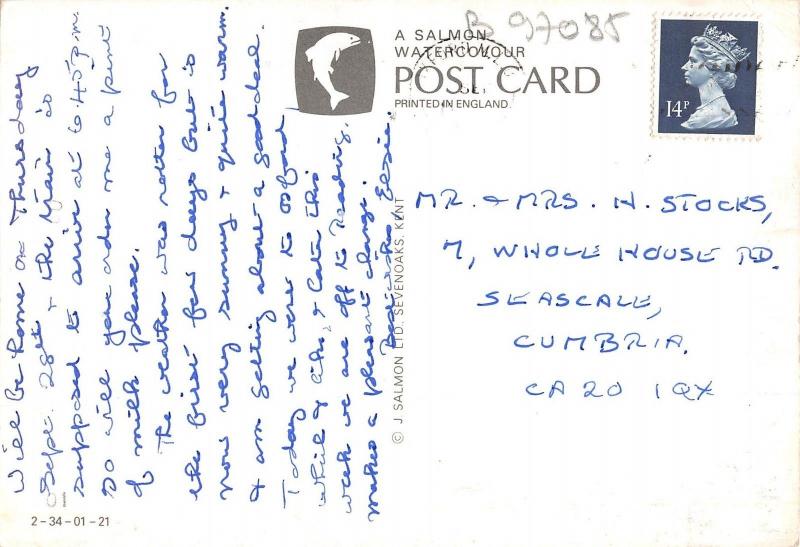 Will be home on Thursday
Sept. 28th & the train is
supposed to arrive at 6.45 p.m.
So will you order me a pint
of milk please.
The weather was rotten for
the first few days but is
now very sunny & quite warm.
I am getting about a good deal.
Today we were to
while & later this
week we are off to Reading,
makes a pleasant change.
Best wishes, Elsie.
B 97085
A SALMON
WATERCOLOUR
POST CARD
PRINTED IN ENGLAND.
14P
MR. & MRS. H. STOCKS,
7, WHOLE HOUSE RD.
SEASCALE,
CUMBRIA.
CA20 1QX
© J SALMON LTD. SEVENOAKS. KENT
2-34-01-21